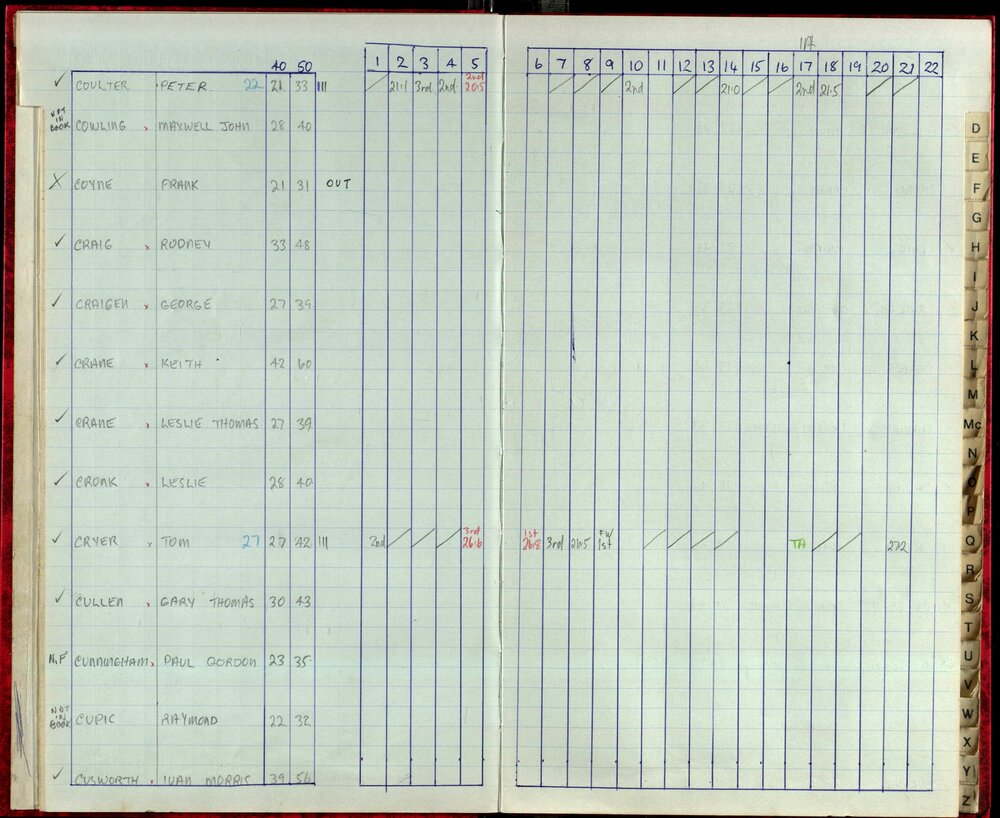 1pt
40 50 1 2 3 4 5 6 7 8 9 10 11 12 13 14 15 16 17 18 19 20 21 22
✓ COULTER PETER 22 21 33 III / 21.1 3rd 2nd 2nd 20.5 / / / 2nd / / 21.0 / / 2nd 21.5 / /
NOT IN BOOK COWLING x MAXWELL JOHN 28 40
X COYNE FRANK 21 31 OUT
✓ CRAIG x RODNEY 33 48
✓ CRAIGEN x GEORGE 27 39
✓ CRANE x KEITH 42 60
✓ CRANE x LESLIE THOMAS 27 39
✓ CRONK x LESLIE 28 40
✓ CRYER x TOM 27 27 42 III 2nd / / / 3rd 26.6 1st 26.8 3rd 26.5 1st / / / / TA / / 27.2
✓ CULLEN x GARY THOMAS 30 43
N.F CUNNINGHAM x PAUL GORDON 23 35
NOT IN BOOK CUPIC RAYMOND 22 32
✓ CUSWORTH x IVAN MORRIS 39 56
D
E
F
G
H
I
J
K
L
M
Mc
N
O
P
Q
R
S
T
U
V
W
X
Y
Z